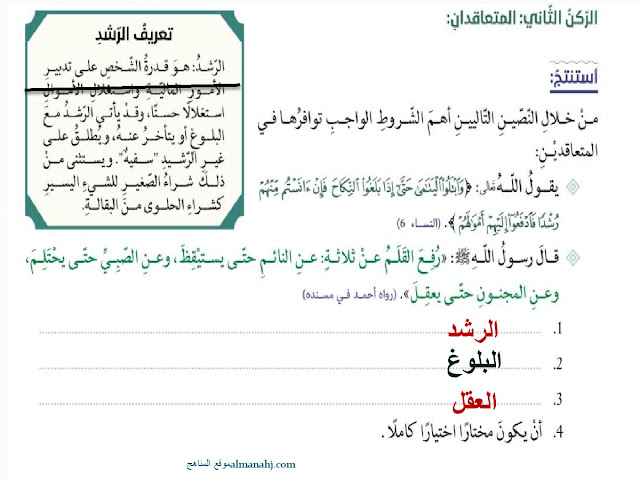 الركنُ الثّاني: المتعاقدانِ:
أستنتجُ:
منْ خلالِ النّصّينِ التّاليينِ أهمَ الشّروطِ الواجبِ توافرُها في
المتعاقديْنِ:
يقولُ اللهُ تعالى: ﴿وَٱبۡتَلُواْ ٱلۡيَتَٰمَىٰ حَتَّىٰٓ إِذَا بَلَغُواْ ٱلنِّكَاحَ فَإِنۡ ءَانَسۡتُم مِّنۡهُمۡ
رُشۡدٗا فَٱدۡفَعُوٓاْ إِلَيۡهِمۡ أَمۡوَٰلَهُمۡ﴾. (النساء 6)
قالَ رسولُ اللهِ ﷺ: «رُفِعَ القَلَمُ عنْ ثلاثةٍ: عنِ النائمِ حتّى يستيْقِظَ، وعنِ الصّبِيِّ حتّى يحْتلِمَ،
وعنِ المجنونِ حتّى يعقِلَ». (رواه أحمد في مسنده)
1. الرشد
2. البلوغ
3. العقل
4. أنْ يكونَ مختارًا اختيارًا كاملًا.
تعريفُ الرّشدِ
الرّشدُ: هوَ قدرةُ الشّخصِ على تدبيرِ
الأمورِ الماليّةِ واستغلالِ الأموالِ
استغلالًا حسنًا، وقدْ يأتي الرّشدُ معَ
البلوغِ أو يتأخرُ عنهُ، ويُطلقُ على
غيرِ الرّشيدِ "سفيهٌ". ويستثنى منْ
ذلكَ شراءُ الصّغيرِ للشيءِ اليسيرِ
كشراءِ الحلوى منَ البقالةِ.
موقع المناهج almanahj.com